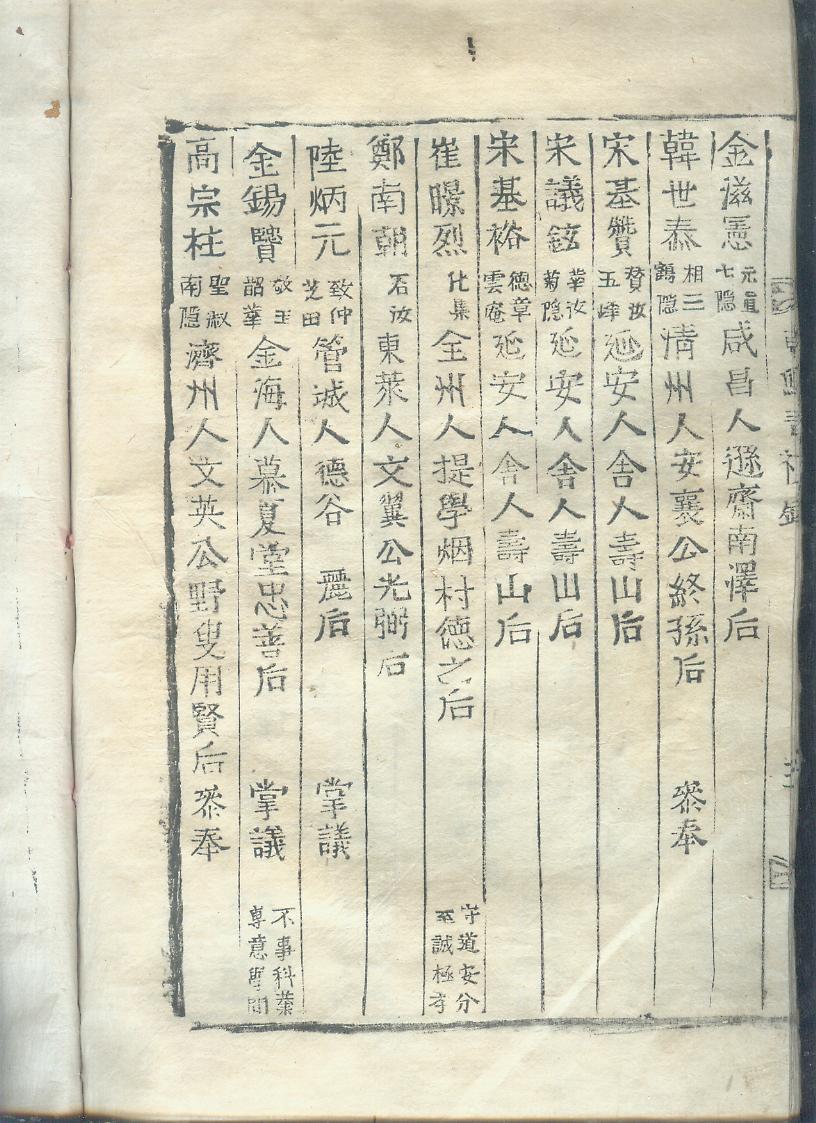 金滋憲 元直 七隱 咸昌人遜齋南澤后
韓世泰 相三 鶴隱 淸州人安襄公終孫后 叅奉
宋基贊 賛汝 五峰 延安人舍人壽山后
宋議鉉 華汝 菊隱 延安人舍人壽山后
宋基裕 德章 雲庵 延安人舍人壽山后
崔曝烈 化集 全州人提學烟村德之后 守道安分 至誠極孝
鄭南朝 石汝 東萊人文翼公光弼后
陸炳元 致仲 芝田 管城人德谷 麗后 掌議
金錫贒 敬玉 韶華 金海人慕夏堂忠善后 掌議 不事科業 專意學問
高宗柱 聖淑 南隱 濟州人文英公野叟用賢后叅奉